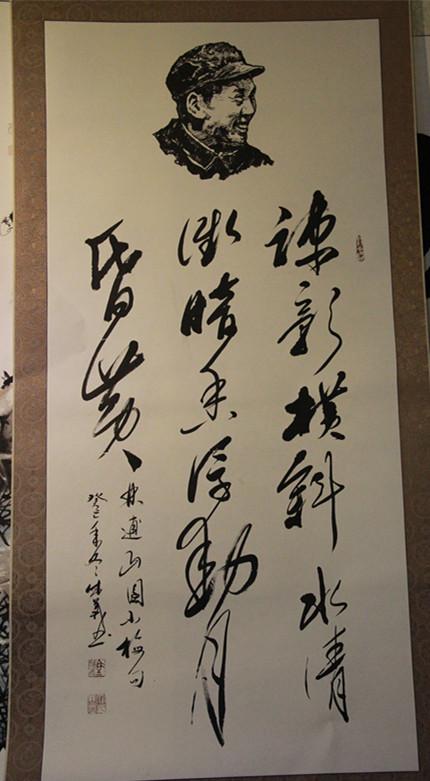 疎影横斜水清
浅暗香浮動月
昏黄
林逋山園小梅句
癸巳年冬